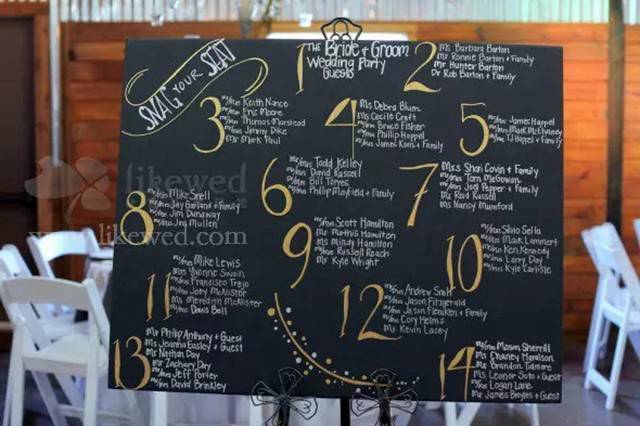 SNAG YOUR SEAT
1
THE Bride + GROOM
Wedding Party
Guests
2
Ms Barbara Barton
Mr Ronnie Barton + Family
Mr Hunter Barton
Dr Rob Barton + Family
3
Mr/Mrs Keith Nance
Mr/Mrs Eric Moore
Mr/Mrs Thomas Marstead
Mr/Mrs Jimmy Dike
Mr Mark Paul
4
Ms Debra Blum
Ms Cecile Craft
Mr/Mrs Bruce Fisher
Mr/Mrs Phillip Happel
Mr/Mrs James Koen + Family
5
Mr/Mrs James Happel
Mr/Mrs Mark McElhaney
Mr/Mrs TJ Happel + Family
6
Mr/Mrs Todd Kelley
Mr/Mrs David Russell
Mr/Mrs Bill Torres
Mr/Mrs Philip Mayfield + Family
7
Mrs Shari Govin + Family
Mr/Mrs Tom McGowan
Mr/Mrs Joel Pepper + Family
Ms Reid Russell
Ms Nancy Mumford
8
Mr/Mrs Mike Snell
Mr/Mrs Jay Garland + Family
Mr/Mrs Jim Dunaway
Mr/Mrs Jay Mullen
9
Mr/Mrs Scott Hamilton
Mr Mathis Hamilton
Ms Mindy Hamilton
Mr/Mrs Russell Roach
Mr Kyle Wright
10
Mr/Mrs Silvio Sella
Mr/Mrs Mark Lammert
Mr/Mrs Ken Kennedy
Mr/Mrs Larry Day
Mr/Mrs Kyle Carlisle
11
Mr/Mrs Mike Lewis
Mrs Yvonne Swain
Mr/Mrs Francisco Trejo
Mr/Mrs Joey McAlister
Ms Meredith McAlister
Mr/Mrs Davis Bell
12
Mr/Mrs Andrew Snell
Mr/Mrs Jason Fitzgerald
Mr/Mrs Jason Fleniken + Family
Mr/Mrs Cory Helms
Mr Kevin Lacey
13
Mr Philip Anthony + Guest
Ms Jeanna Easley + Guest
Mr Nathan Day
Mr Zachary Day
Mr/Mrs Jeff Porter
Mr/Mrs David Brinkley
14
Mr/Mrs Mason Sherrill
Ms Chaney Harrison
Mr Brandon Tamaro
Ms Leanor Soto + Guest
Mr/Mrs Logan Lane
Mr James Broyles + Guest
likewed
www.likewed.com